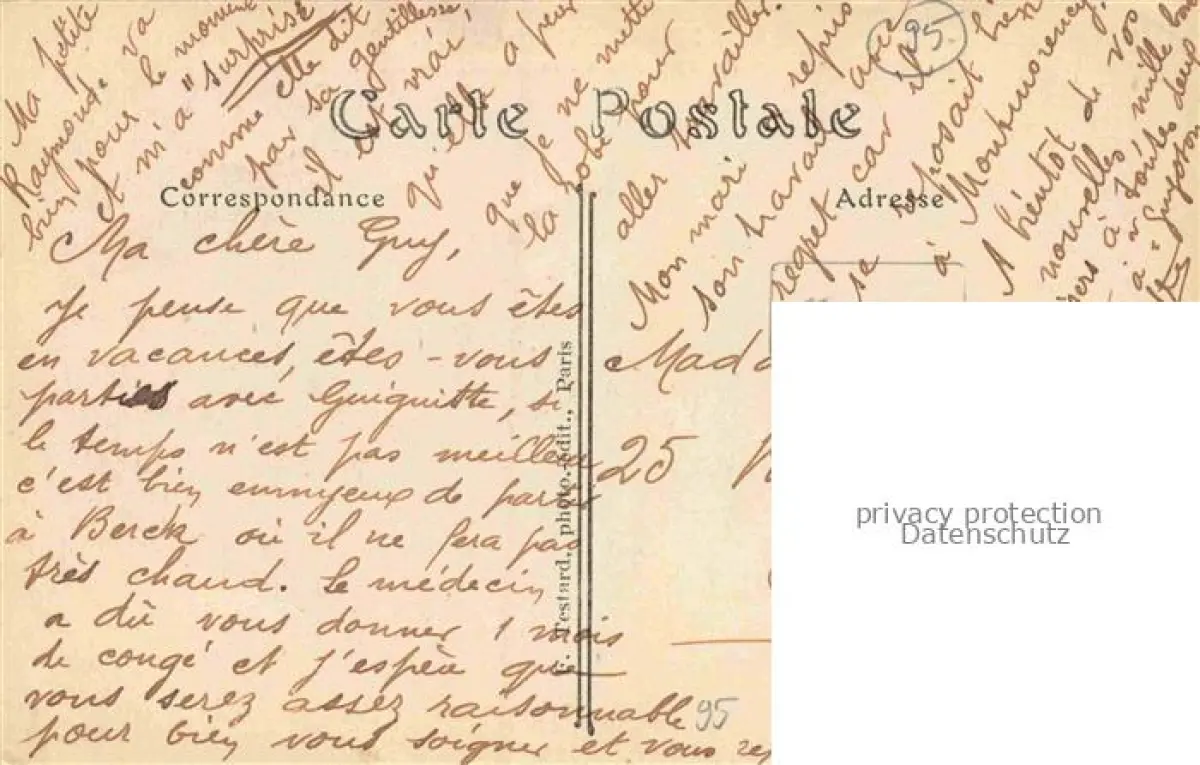 Carte Postale
Correspondance
Adresse
Ma chère Guy,
Je pense que vous êtes
en vacances, êtes-vous
parties avec Guiguitte, si
le temps n'est pas meilleur
c'est bien ennuyeux de partir
à Berck où il ne fera pas
très chaud. Le médecin
a dû vous donner 1 mois
de congé et j'espère que
vous serez assez raisonnable
pour bien vous soigner et vous
Ma petite
Raymonde va
bien pour le moment
et m'a "surprise"
comme elle dit
par sa gentillesse,
il est vrai,
qu'elle a peur
que je ne mette
la robe pour
aller travailler.
Mon mari repris
son travail avec
regret car il
se reposait bien
à Montmorency.
A bientôt de vos
nouvelles mille bons
à toutes deux
à Guyton
95
95
25
photo.-édit., Paris
privacy protection
Datenschutz